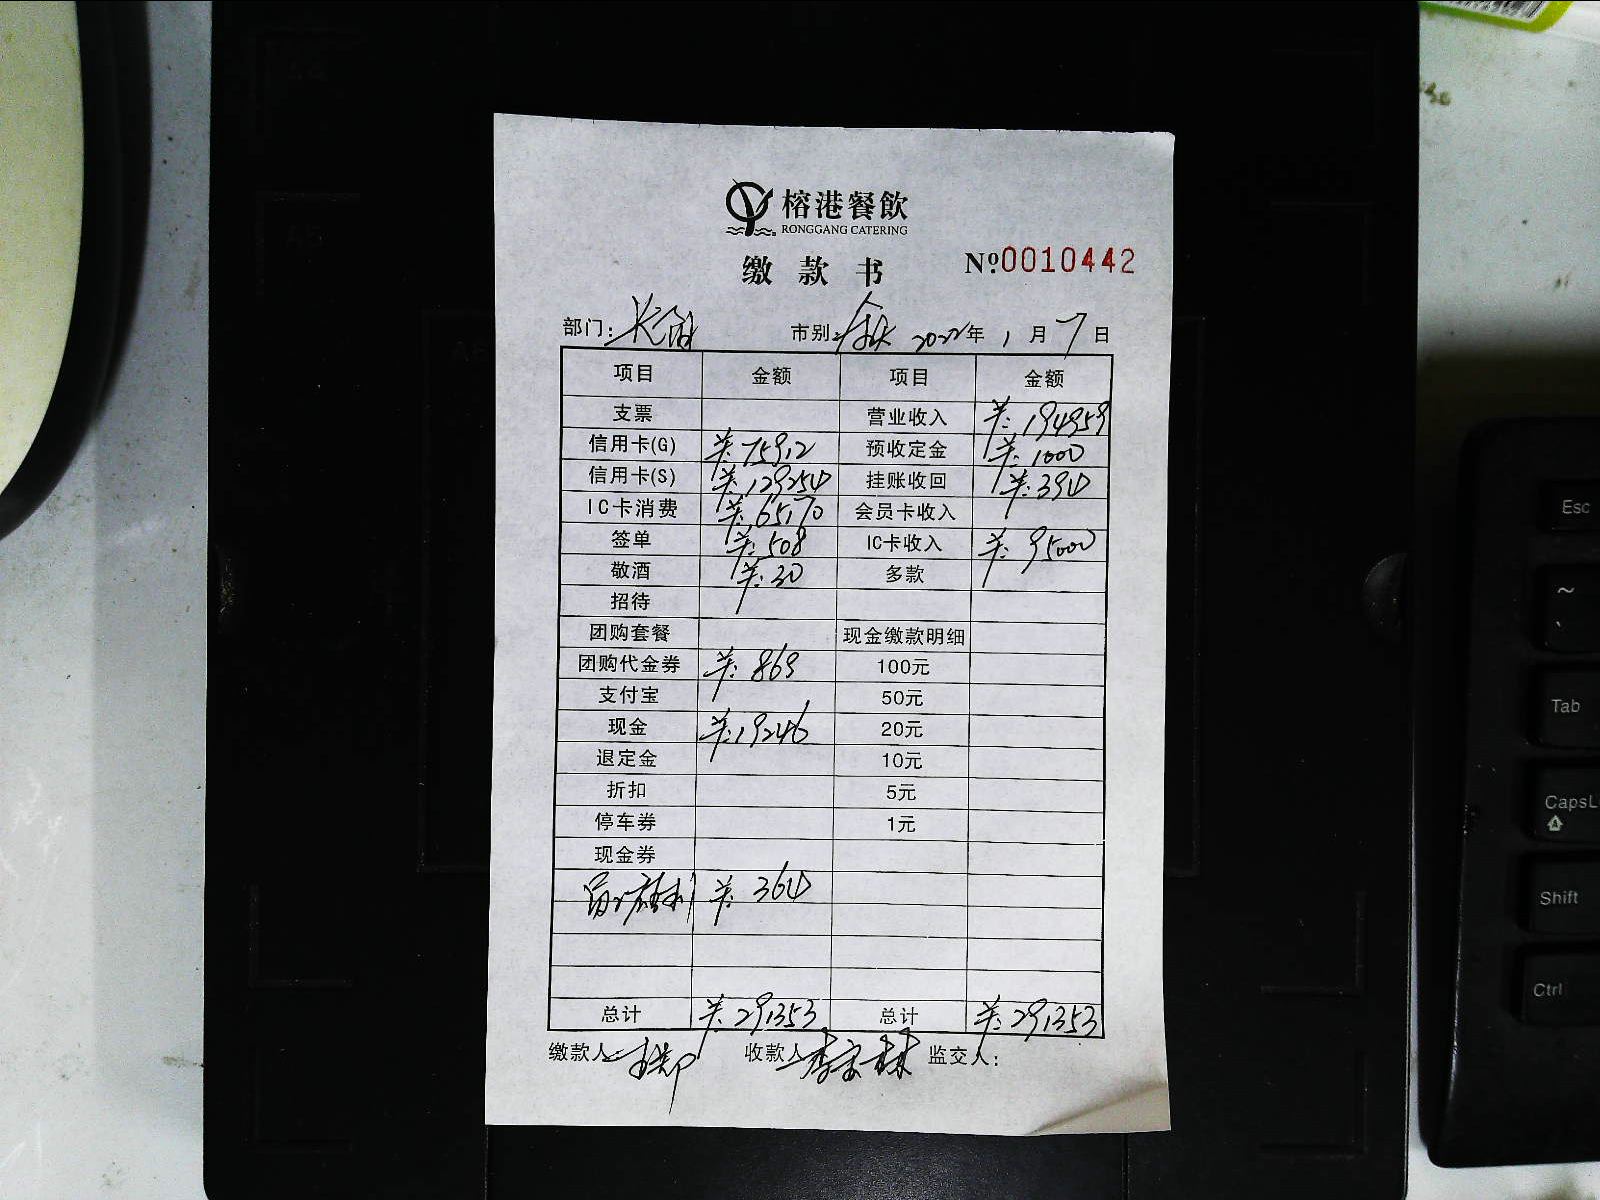 榕港餐飲
RONGGANG CATERING
缴款书
Nº0010442
部门: 市别: 2022年 1月 7日
项目 金额 项目 金额
支票 营业收入 ¥:194959
信用卡(G) ¥:75912 预收定金 ¥:1000
信用卡(S) ¥:129254 挂账收回 ¥:394
IC卡消费 ¥:65170 会员卡收入
签单 ¥:508 IC卡收入 ¥:95000
敬酒 ¥:30 多款
招待
团购套餐 现金缴款明细
团购代金券 ¥:869 100元
支付宝 50元
现金 ¥:19246 20元
退定金 10元
折扣 5元
停车券 1元
现金券
员工福利 ¥:364
总计 ¥:291353 总计 ¥:291353
缴款人: 收款人: 监交人:
Esc
~
Tab
CapsL
Shift
Ctrl